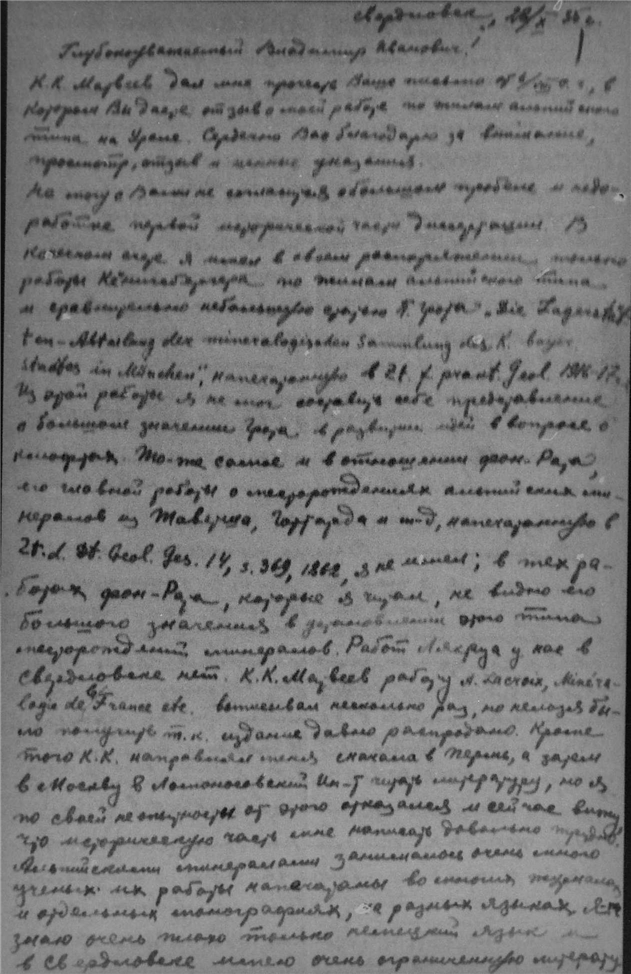 Свердловск, 28/X 35 г.
Глубокоуважаемый Владимир Иванович!
К.К. Матвеев дал мне прочесть Ваше письмо от г., в
котором Вы даете отзыв о моей работе по жилам альпийского
типа на Урале. Сердечно Вас благодарю за внимание,
просмотр, отзыв и ценные указания.
Не могу с Вами не согласиться о большом пробеле и недо-
работке первой исторической части диссертации. В
Свердловске я имел в своем распоряжении только
работы Кёнигсбергера по жилам альпийского типа
и сравнительно небольшую статью П. Грота „Die Lagerstät-
ten-Abteilung der mineralogischen Sammlung des K. bayer.
Staates in München", напечатанную в Zt. f. prakt. Geol. 1916-17 г.
Из этой работы я не мог составить себе представление
о большом значении Грота в развитии идей в вопросе о
. То-же самое и в отношении фон-Рата,
его главной работы о месторождениях альпийских ми-
нералов из Тавеча, Готтарда и т-д, напечатанную в
Zt. d. Dt. Geol. Ges. 14, s. 369, 1862, я не имел; в тех ра-
ботах фон-Рата, которые я читал, не видно его
большого значения в установлении этого типа
месторождений минералов. Работ Лякруа у нас в
Свердловске нет. К.К. Матвеев работу A. Lacroix, Minéra-
logie de la France etc. выписывал несколько раз, но нельзя бы-
ло получить т.к. издание давно распродано. Кроме
того К.К. направлял меня сначала в Пермь, а затем
в Москву в Ломоносовский Ин-т читать литературу, но я
по своей неопытности от этого отказался и сейчас вижу
что историческую часть мне написать довольно трудно.
Альпийскими минералами занималось очень много
ученых их работы напечатаны во многих журналах
и отдельных монографиях, на разных языках. Я-же
знаю очень плохо только немецкий язык и
в Свердловске имею очень ограниченную литерату